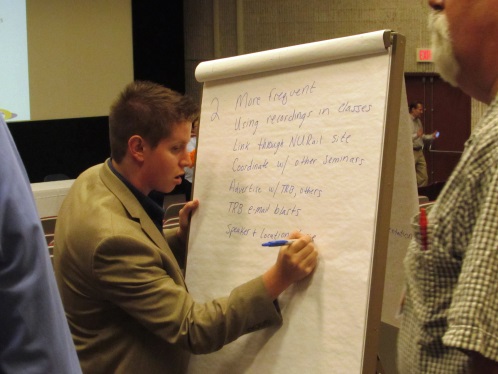 2 More frequent
Using recordings in classes
Link through NURail site
Coordinate w/ other seminars
Advertise w/ TRB, others
TRB e-mail blasts
Speaker + Location